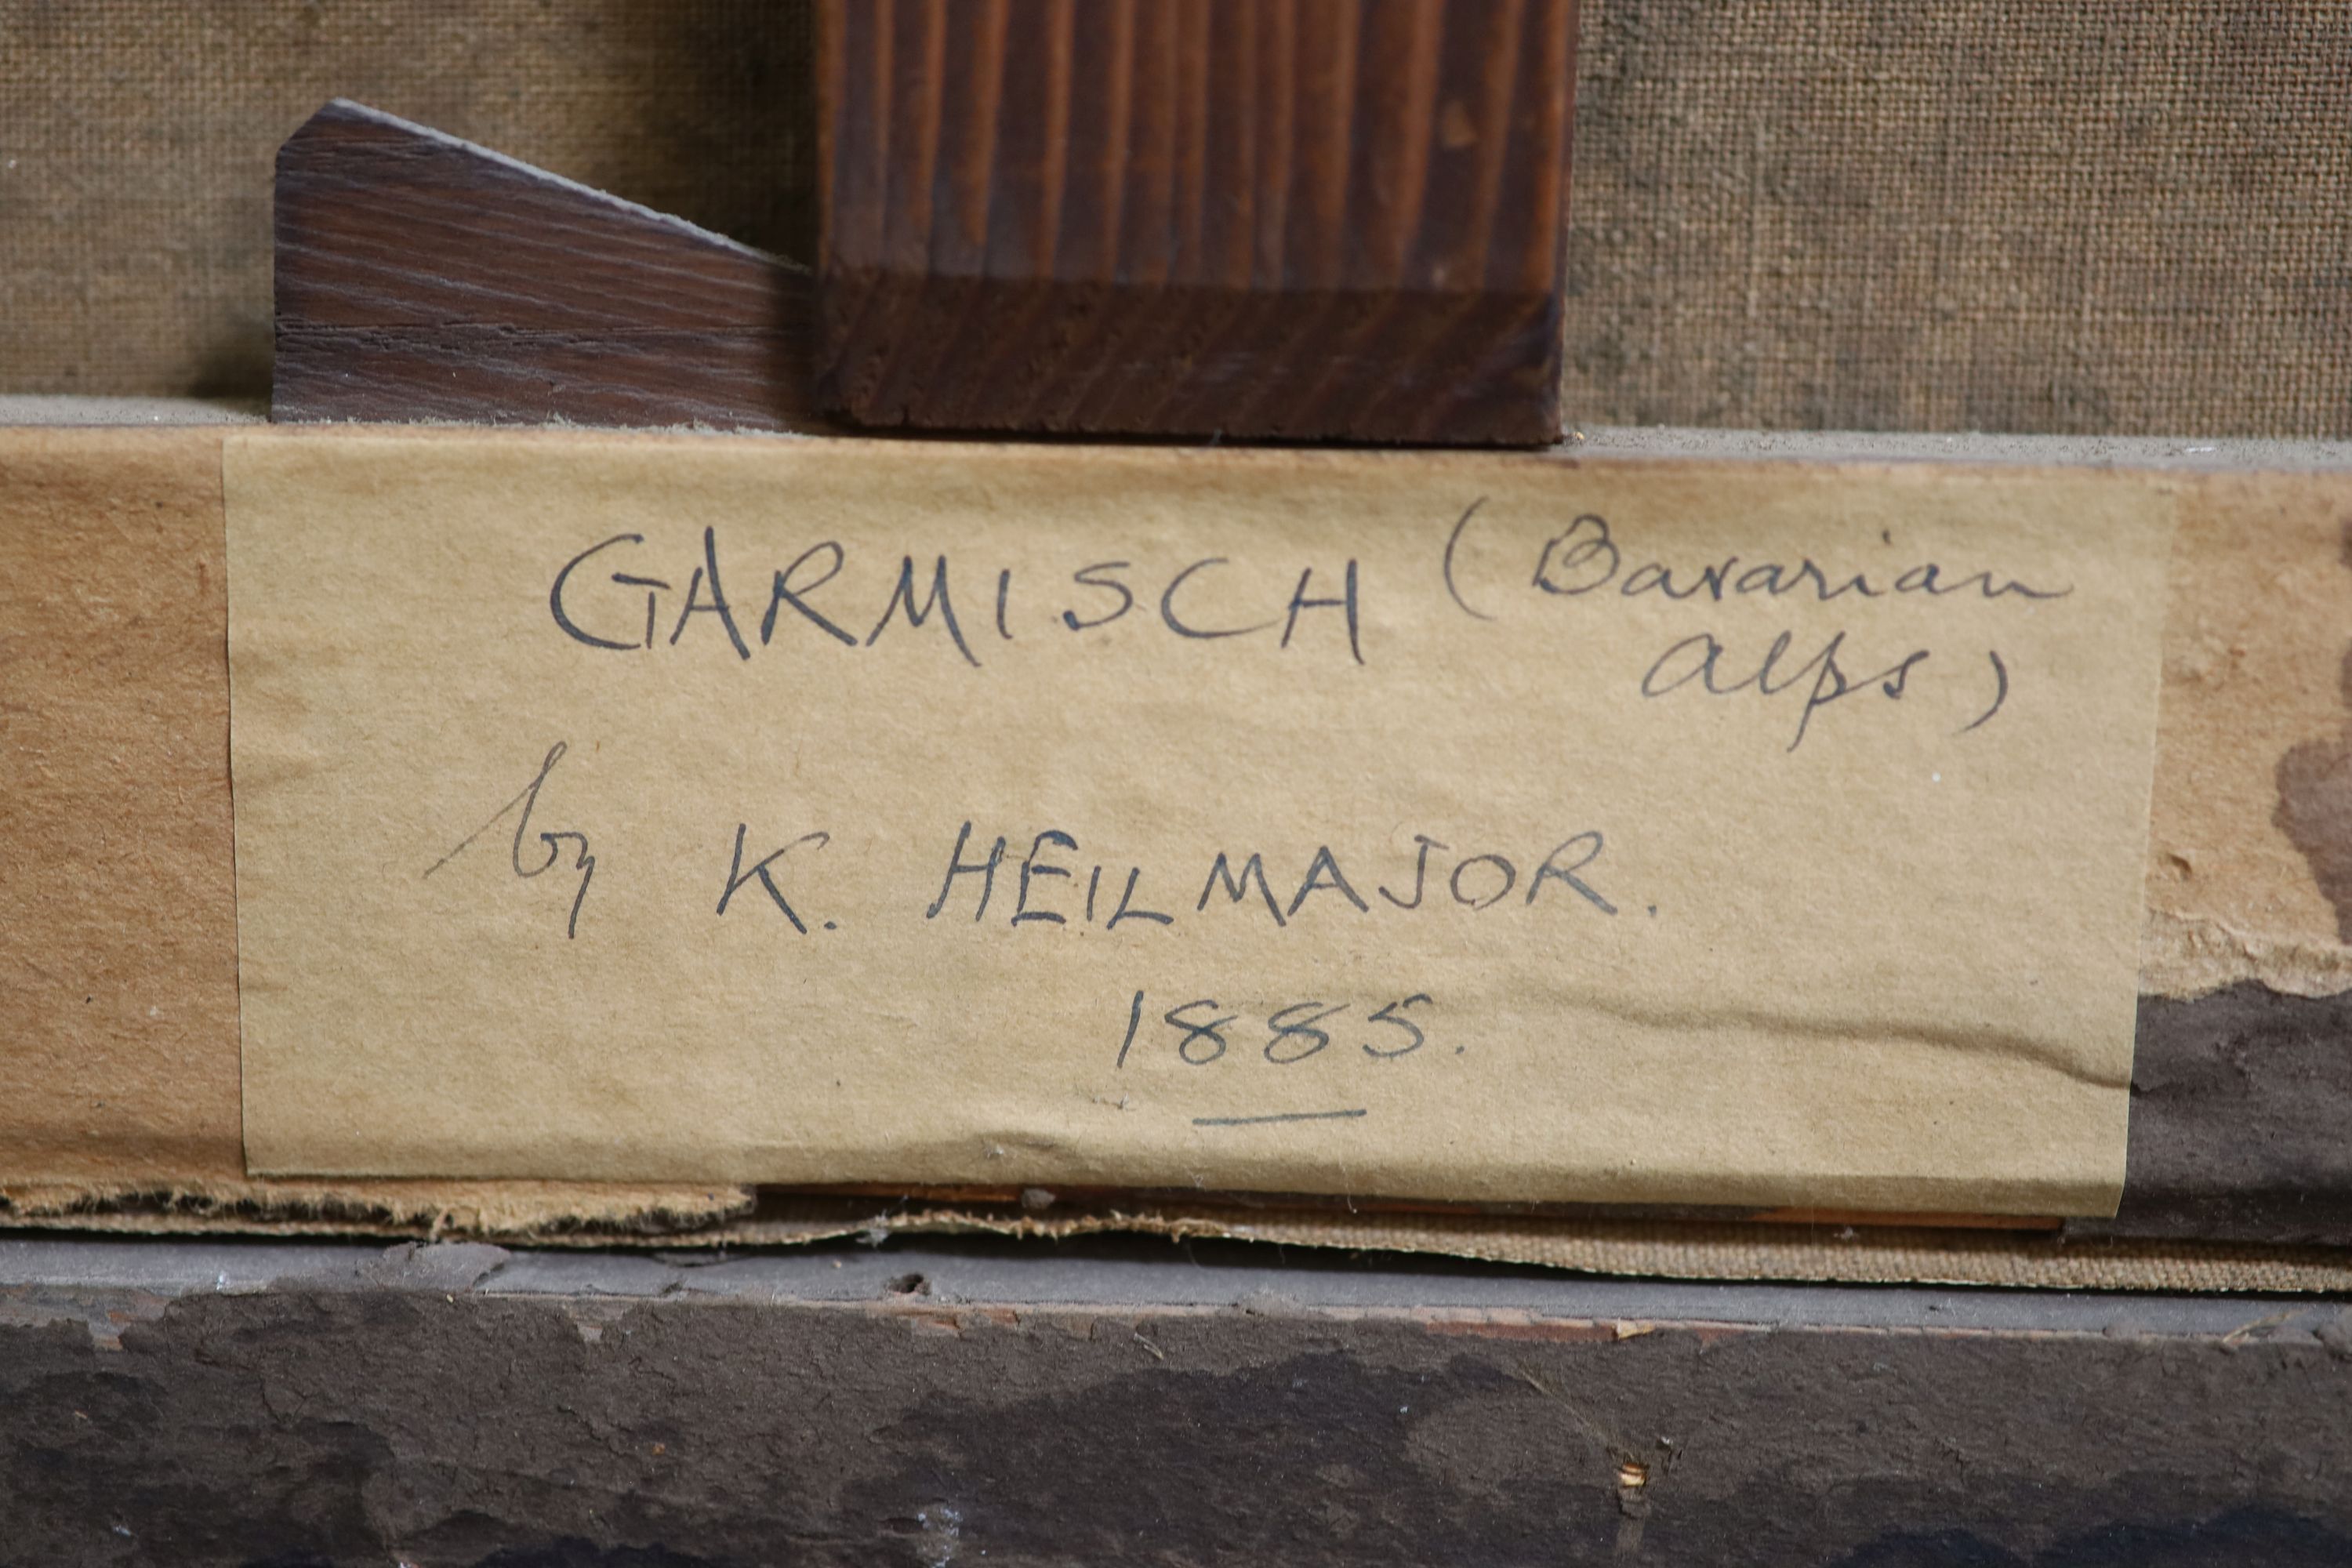 GARMISCH (Bavarian
Alps)
by K. HEILMAJOR.
1885.